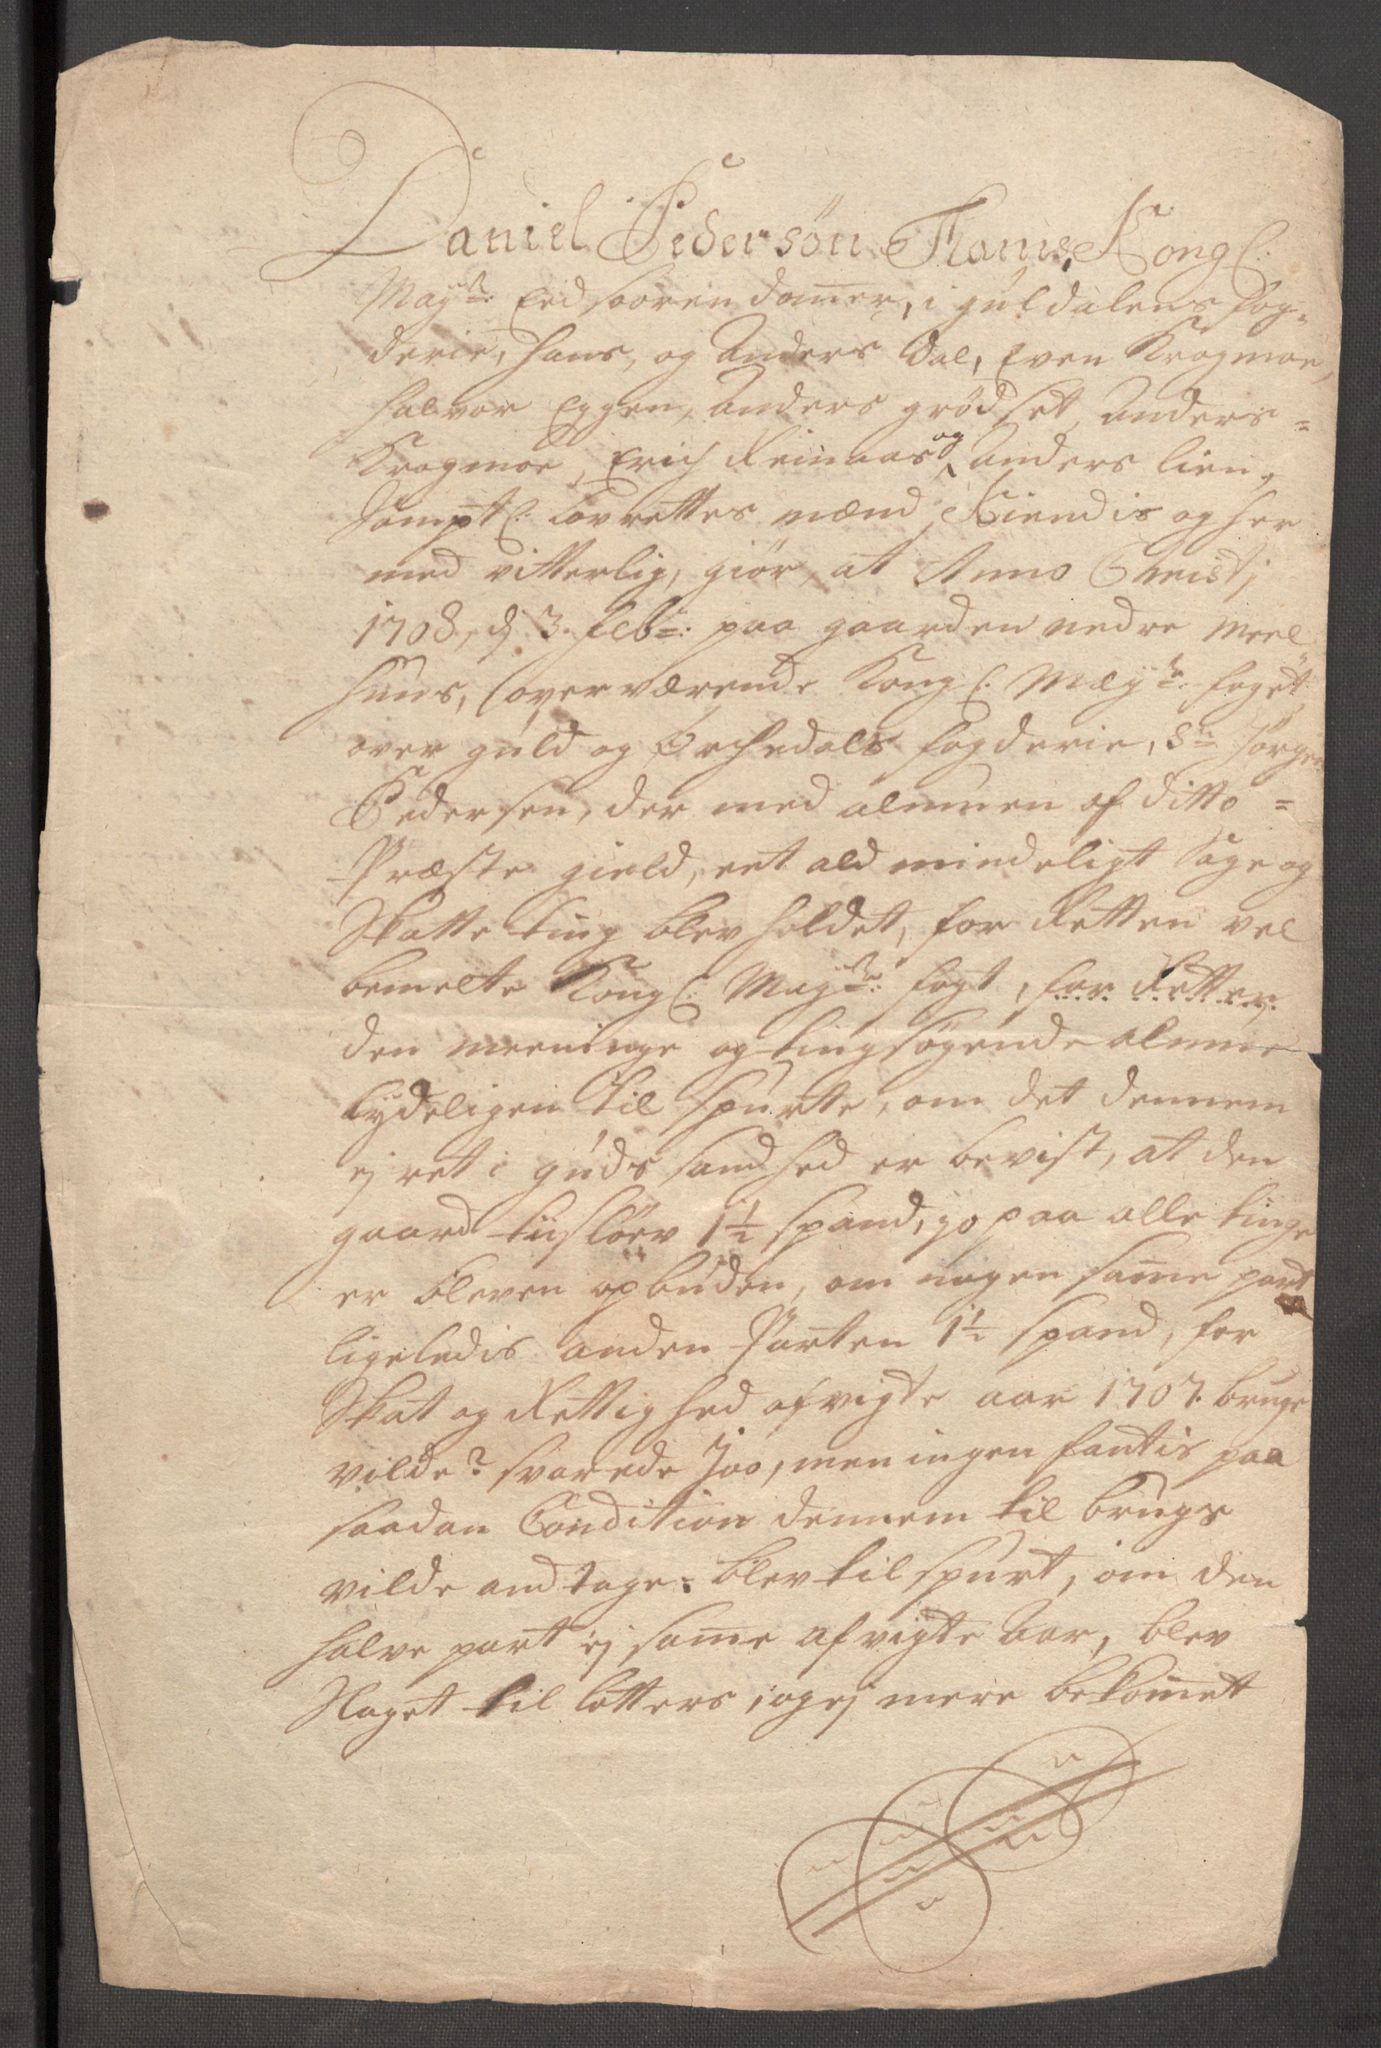 Daniel Pedersøn Floms, Kongl:
Mayts: Eedsooren domer, i Guldalens fog-
derie, Hans, og Anders Dal, Even Krogmoe,
Halvor Eggen, Anders Grødset, Anders =
Krogmoe, Erich Reinaas og Anders Lien,
Samptl: Lovrettes mænd, Kiendis og her
med vitterlig, giør, at Anno Christi
1708, d 3. febr: paa gaarden nedre Meel
huus, overværende Kongl. Mayts: foget
over Guld og Orchedals fogderie, Sr. Jørgen
Pedersen, der med almuen af ditto =
Præste gield, eet ald mindeligt Sage og
Skatte ting blev holdet, for Retten vel
bemelte Kongl: Mayts: fogt, for Retten
den meenige og tingsøgende almue
lydeligen til spurte, om det dennem
ej ret i guds sandhed er bevist, at den
gaard 1½ spand, jo paa alle tinge
er bleven opbuden, om nogen same part
ligeledis anden Parten 1½ spand, for
Skat og Rettighed afvigte aar 1707. bruge
vilde? svarede Joo, men ingen fantis paa
saadan Condition dennem til brugs
vilde andtage: blev tilspurt, om den
halve part ej same afvigte Aar, blev
Slaget til lotters, og ej mere bekomett